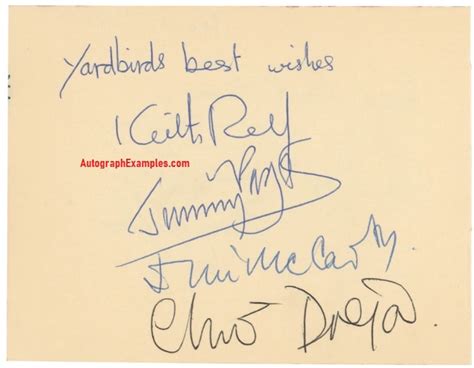 Yardbirds best wishes
Keith Relf
AutographExamples.com
Jimmy Page
Jim McCarty
Chris Dreja.